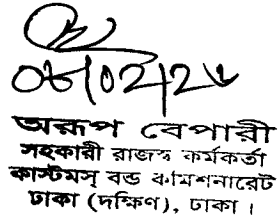 ০৮/০২/২৮
অরূপ বেপারী
সহকারী রাজস্ব কর্মকর্তা
কাস্টমস্ বন্ড কমিশনারেট
ঢাকা (দক্ষিণ), ঢাকা।